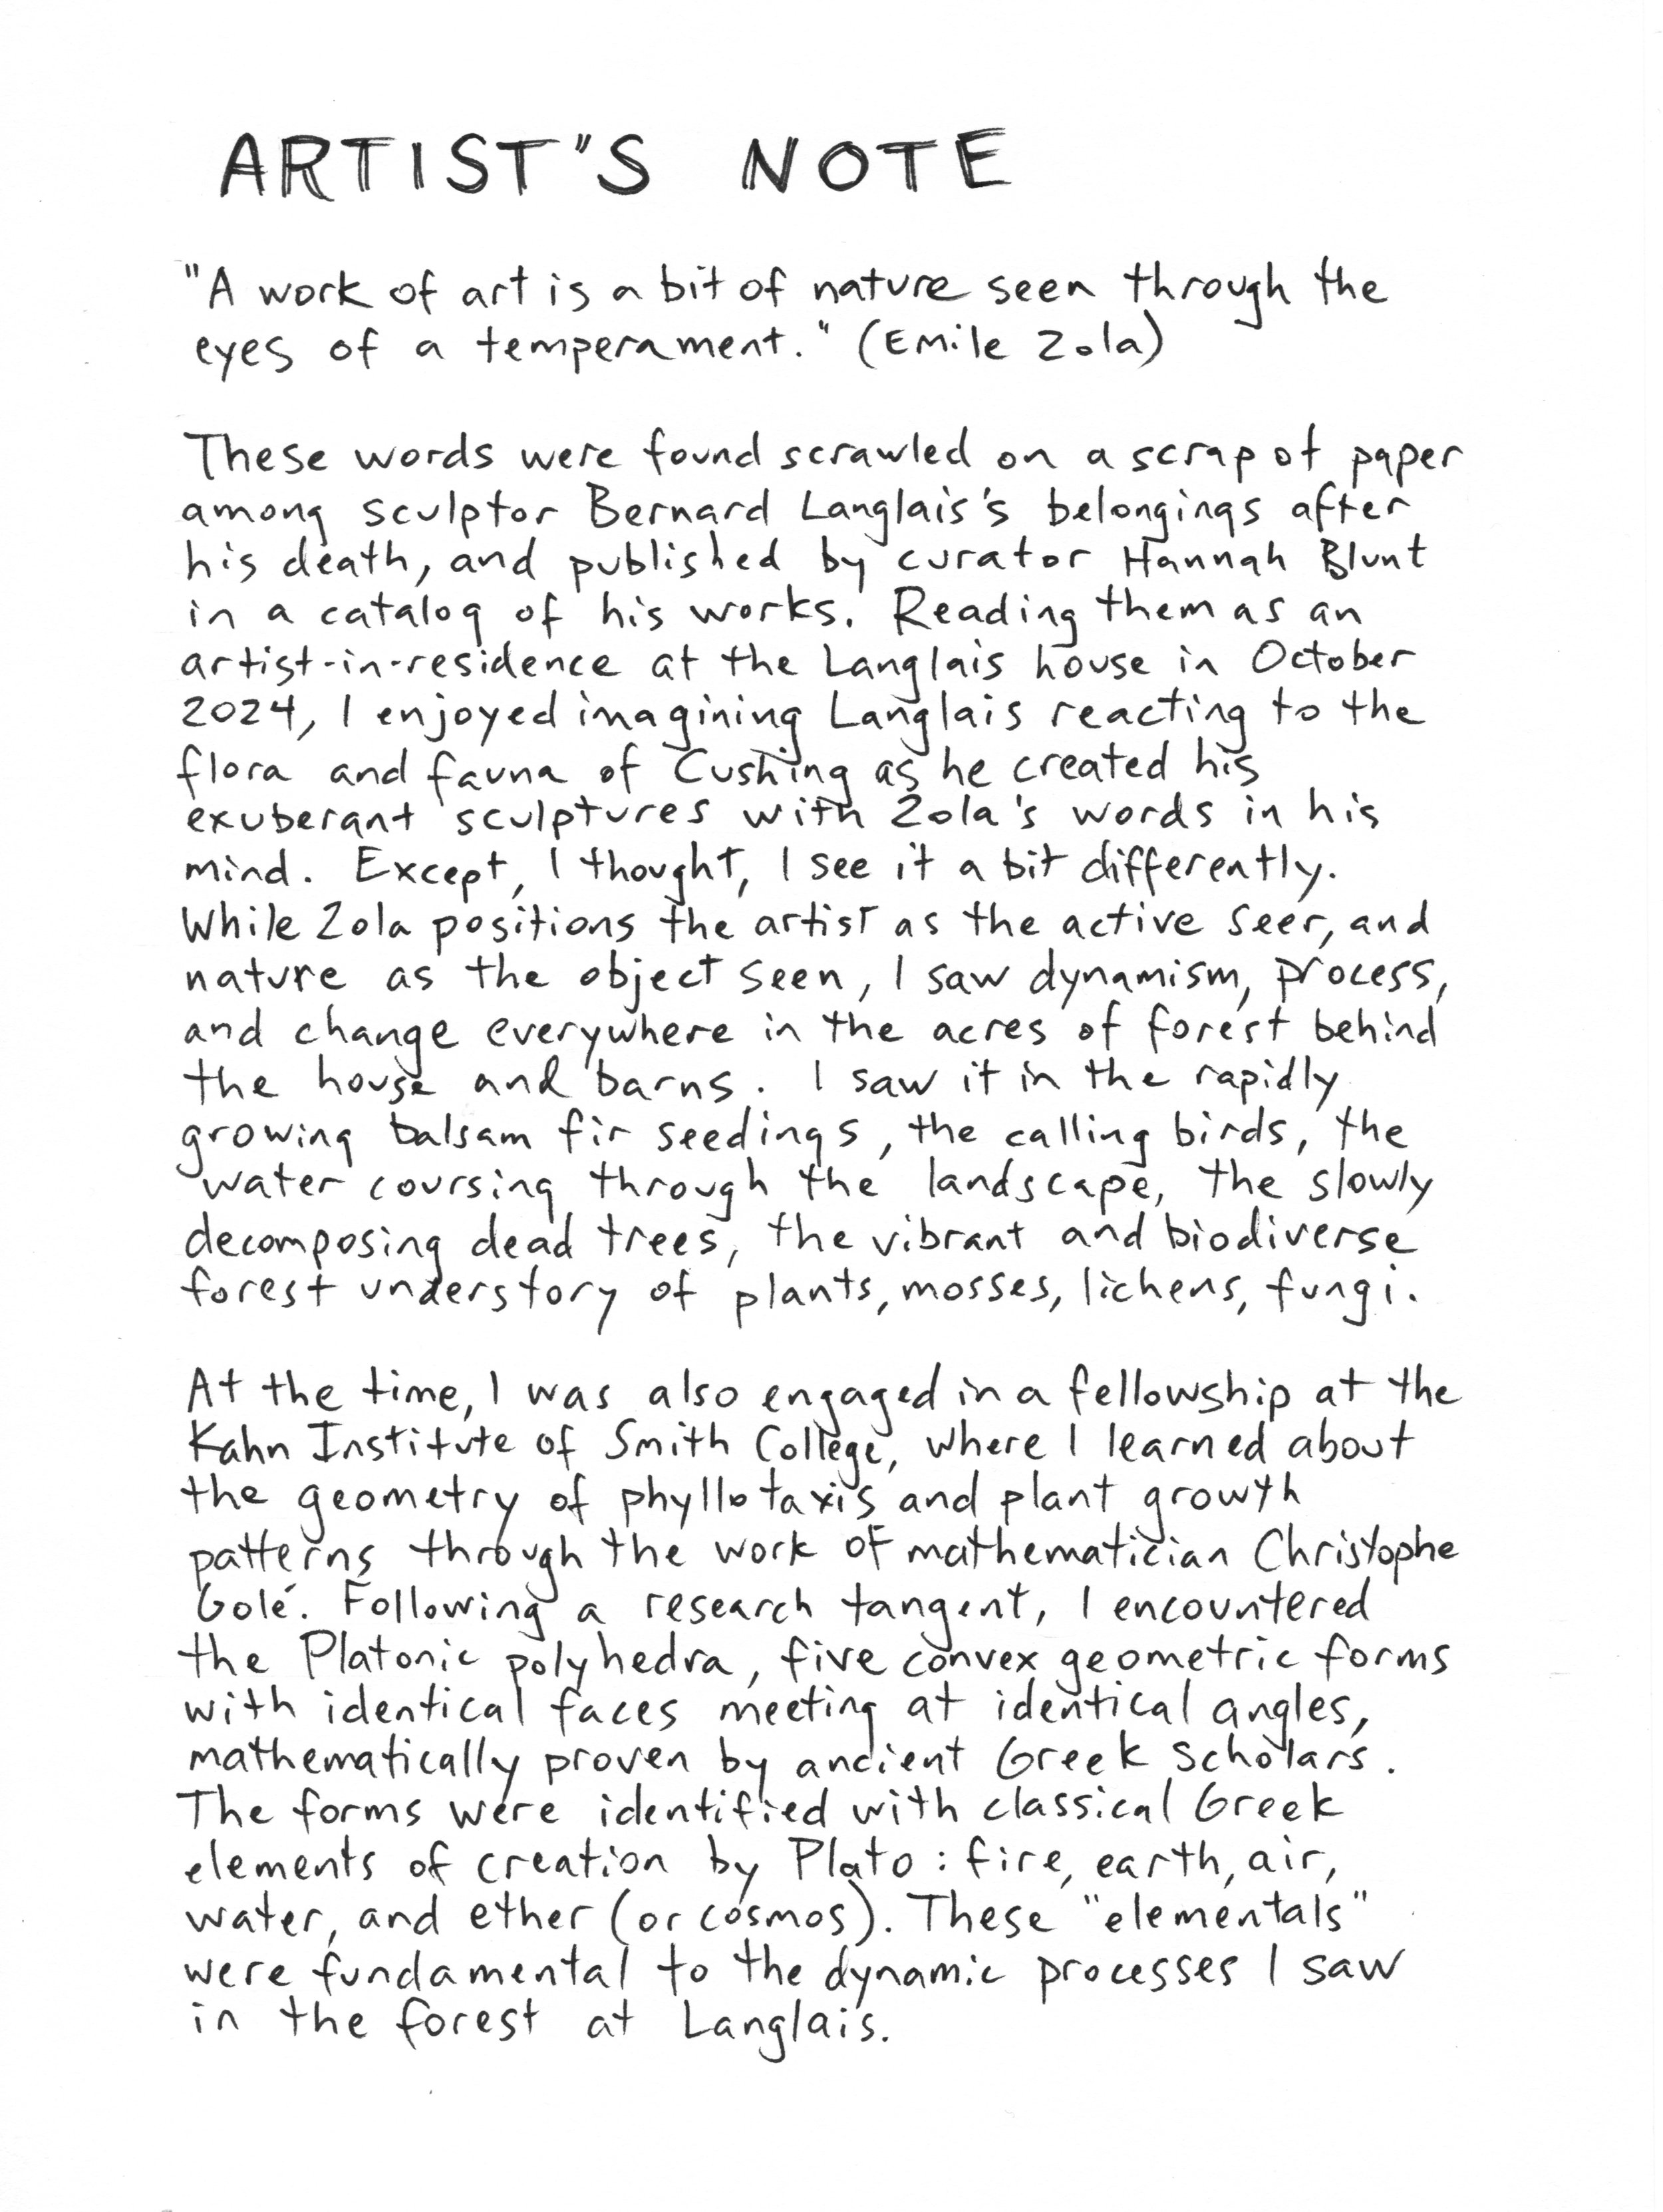 ARTIST'S NOTE
"A work of art is a bit of nature seen through the
eyes of a temperament." (Emile Zola)
These words were found scrawled on a scrap of paper
among sculptor Bernard Langlais's belongings after
his death, and published by curator Hannah Blunt
in a catalog of his works. Reading them as an
artist-in-residence at the Langlais house in October
2024, I enjoyed imagining Langlais reacting to the
flora and fauna of Cushing as he created his
exuberant sculptures with Zola's words in his
mind. Except, I thought, I see it a bit differently.
While Zola positions the artist as the active seer, and
nature as the object seen, I saw dynamism, process,
and change everywhere in the acres of forest behind
the house and barns. I saw it in the rapidly
growing balsam fir seedings, the calling birds, the
water coursing through the landscape, the slowly
decomposing dead trees, the vibrant and biodiverse
forest understory of plants, mosses, lichens, fungi.
At the time, I was also engaged in a fellowship at the
Kahn Institute of Smith College, where I learned about
the geometry of phyllotaxis and plant growth
patterns through the work of mathematician Christophe
Golé. Following a research tangent, I encountered
the Platonic polyhedra, five convex geometric forms
with identical faces meeting at identical angles,
mathematically proven by ancient Greek scholars.
The forms were identified with classical Greek
elements of creation by Plato: fire, earth, air,
water, and ether (or cosmos). These "elementals"
were fundamental to the dynamic processes I saw
in the forest at Langlais.